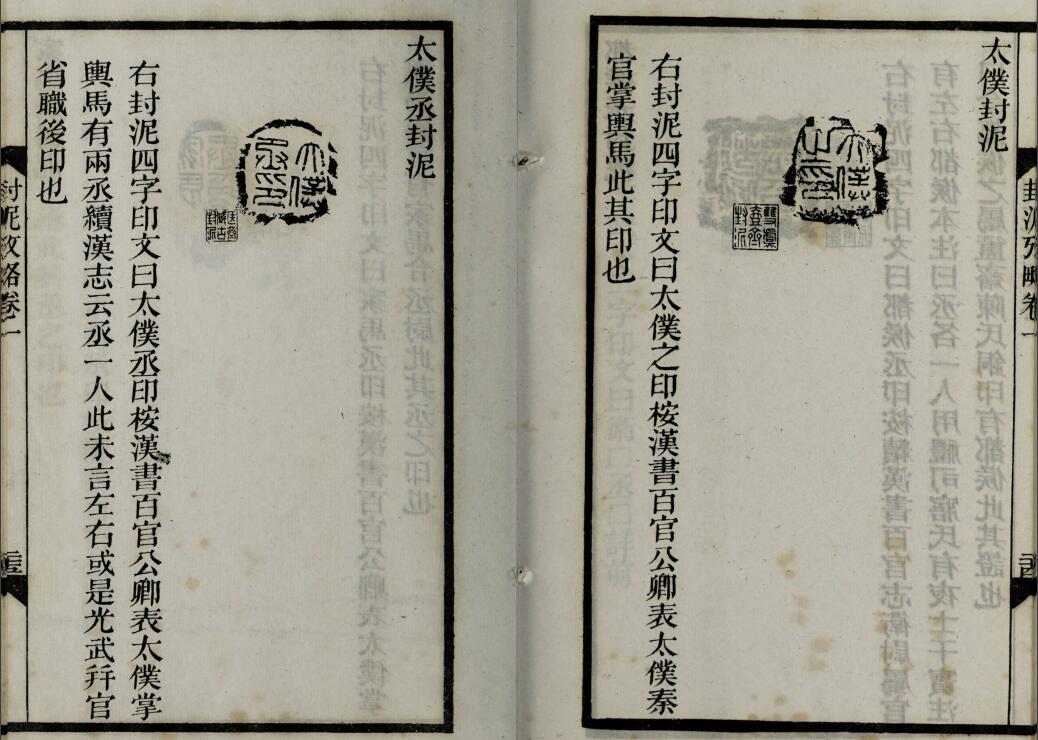 太僕封泥
右封泥四字印文曰太僕之印桉漢書百官公卿表太僕秦
官掌輿馬此其印也
封泥攷略卷一
太僕丞封泥
右封泥四字印文曰太僕丞印桉漢書百官公卿表太僕掌
輿馬有兩丞續漢志云丞一人此未言左右或是光武幷官
省職後印也
封泥攷略卷一